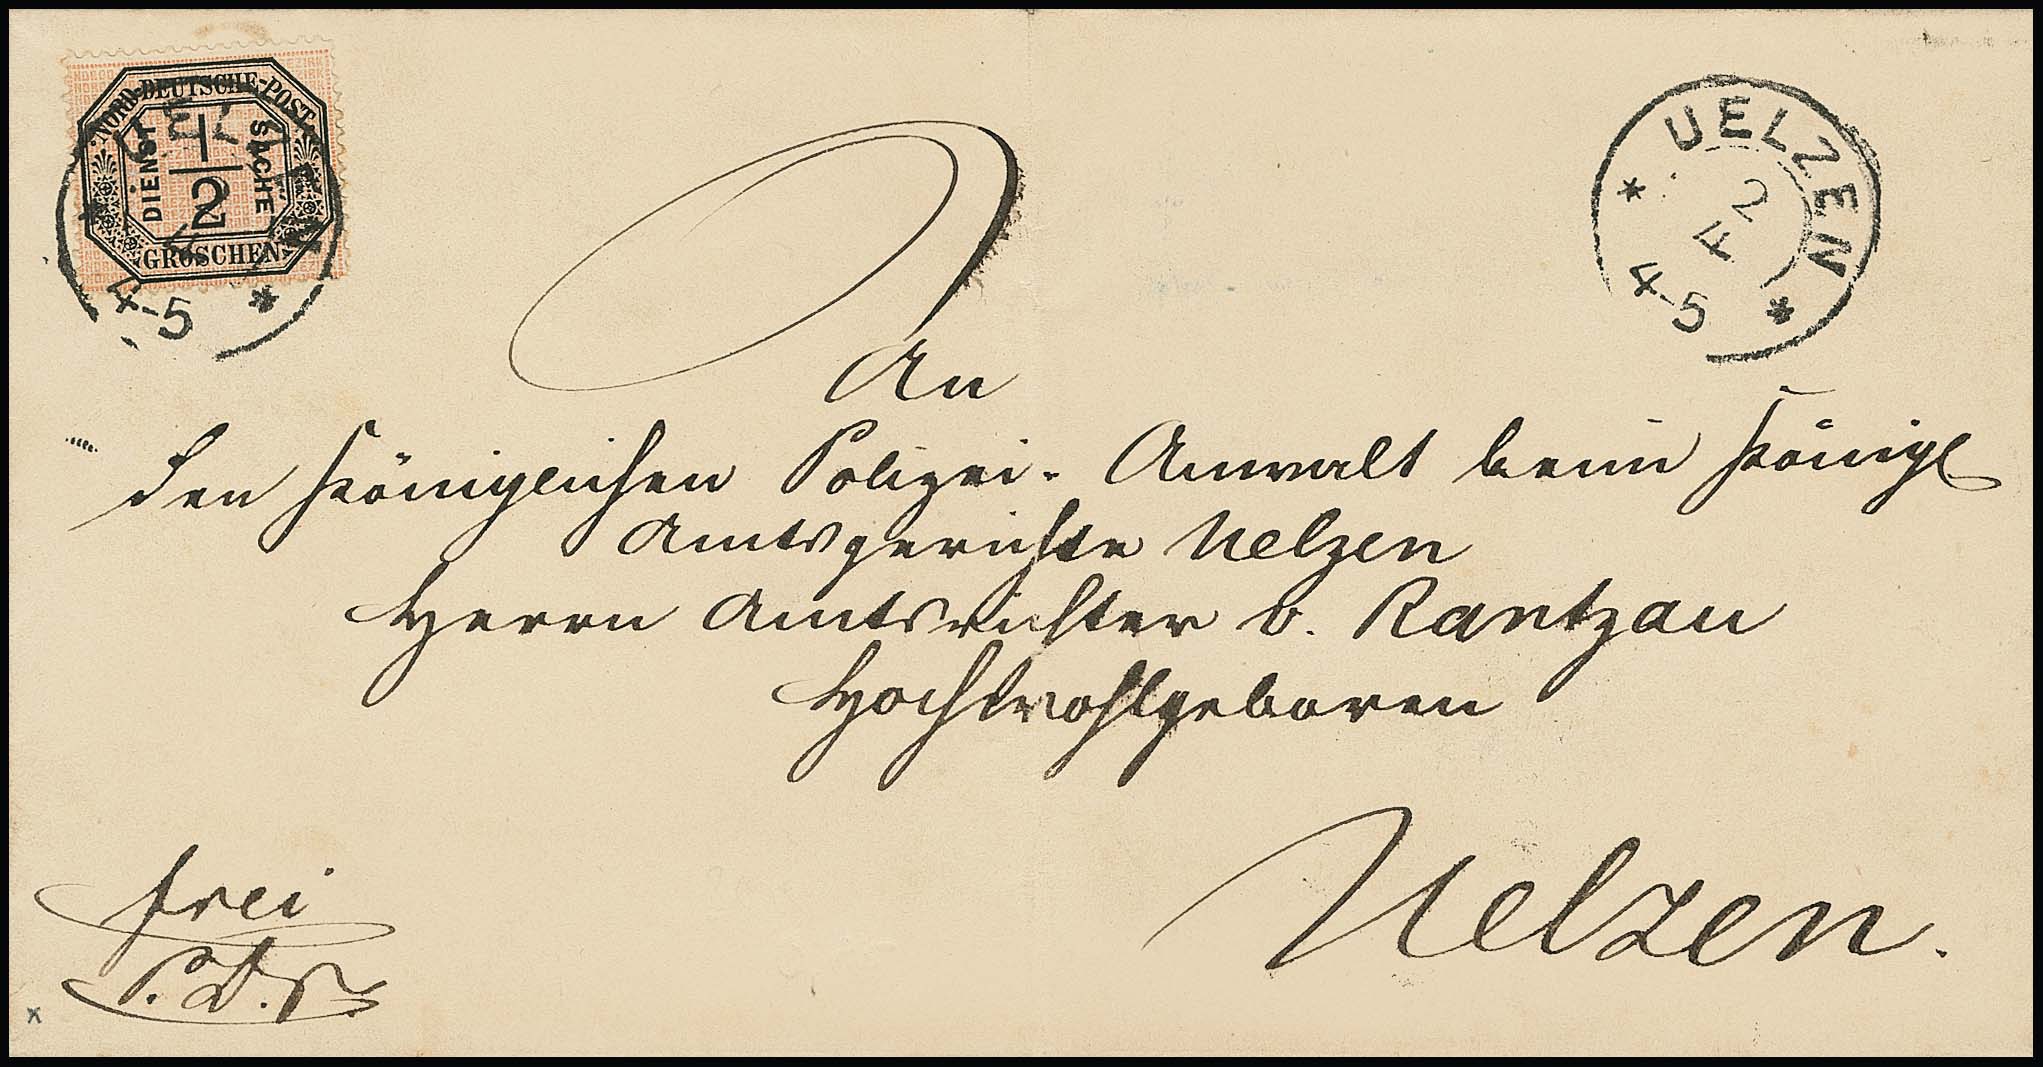 NORD-DEUTSCHE-POST
DIENST SACHE
1/2
GROSCHEN
UELZEN
2
4
4-5
UELZEN
4-5
An
den Königlichen Polizei-Anwalt beim Königl
Amtsgerichte Uelzen
Herrn Amtsrichter v. Rantzau
Hochwohlgeboren
Uelzen.
frei